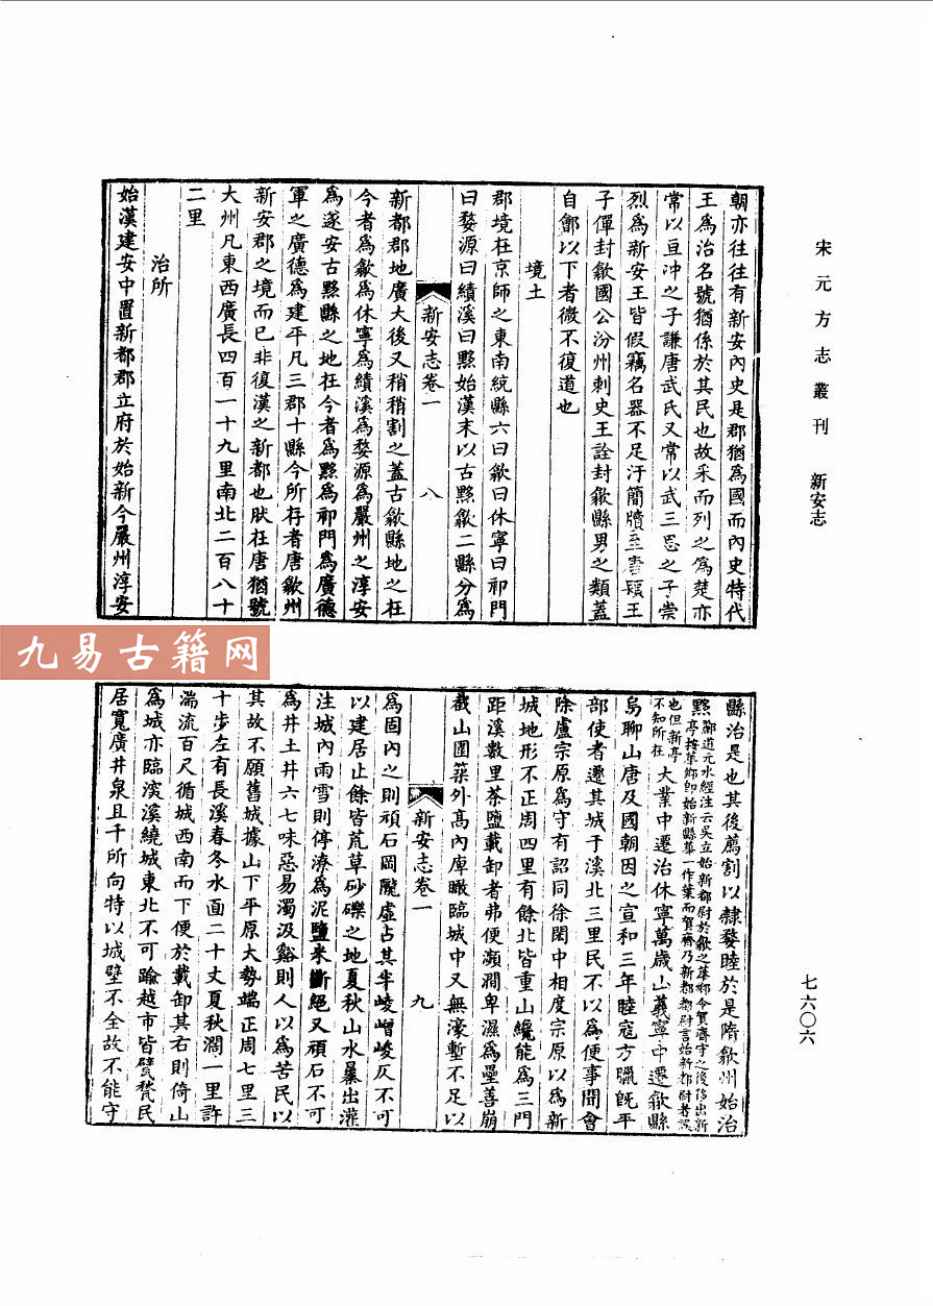 宋元方志叢刊 新安志
七六〇六
朝亦往往有新安內史是郡猶爲國而內史特代
王爲治名號猶係於其民也故采而列之爲楚亦
常以亘冲之子謙唐武氏又常以武三思之子崇
烈爲新安王皆假竊名器不足汙簡牘至 王
子僤封歙國公汾州刺史王詮封歙縣男之類蓋
自鄶以下者微不復道也
境土
郡境在京師之東南統縣六曰歙曰休寧曰祁門
曰婺源曰績溪曰黟始漢末以古黟歙二縣分爲
新安志卷一 八
新都郡地廣大後又稍稍割之蓋古歙縣地之在
今者爲歙爲休寧爲績溪爲婺源爲嚴州之淳安
爲遂安古黟縣之地在今者爲黟爲祁門爲廣德
軍之廣德爲建平凡三郡十縣今所存者唐歙州
新安郡之境而已非復漢之新都也肰在唐猶號
大州凡東西廣長四百一十九里南北二百八十
二里
治所
始漢建安中置新都郡立府於始新今嚴州淳安
縣治是也其後薦割以隸婺睦於是隋歙州始治
黟酈道元水經注云吳立始新都尉於歙之華鄉今賀齊守之後移出新
亭按華鄉即始新縣華一作葉而賀齊乃新都郡尉言始新都尉者誤
也但新亭
不知所在大業中遷治休寧萬歲山義寧中遷歙縣
烏聊山唐及國朝因之宣和三年睦寇方臘旣平
部使者遷其城于溪北三里民不以爲便事聞會
除盧宗原爲守有詔同徐閎中相度宗原以爲新
城地形不正周四里有餘北皆重山纔能爲三門
距溪數里茶鹽載卸者弗便瀕澗卑濕爲壘善崩
截山圍築外髙內庳瞰臨城中又無濠塹不足以
新安志卷一 九
爲固內之則頑石岡隴虛占其半崚嶒峻仄不可
以建居止餘皆荒草砂礫之地夏秋山水暴出灌
注城內雨雪則停濟爲泥鹽米斷絕又頑石不可
爲井土井六七味惡易濁汲谿則人以爲苦民以
其故不願舊城據山下平原大勢端正周七里三
十步左有長溪春冬水面二十丈夏秋濶一里許
湍流百尺循城西南而下便於載卸其右則倚山
爲城亦臨濱溪繞城東北不可踰越市皆甓甃民
居寬廣井泉且千所向特以城壁不全故不能守
九易古籍网